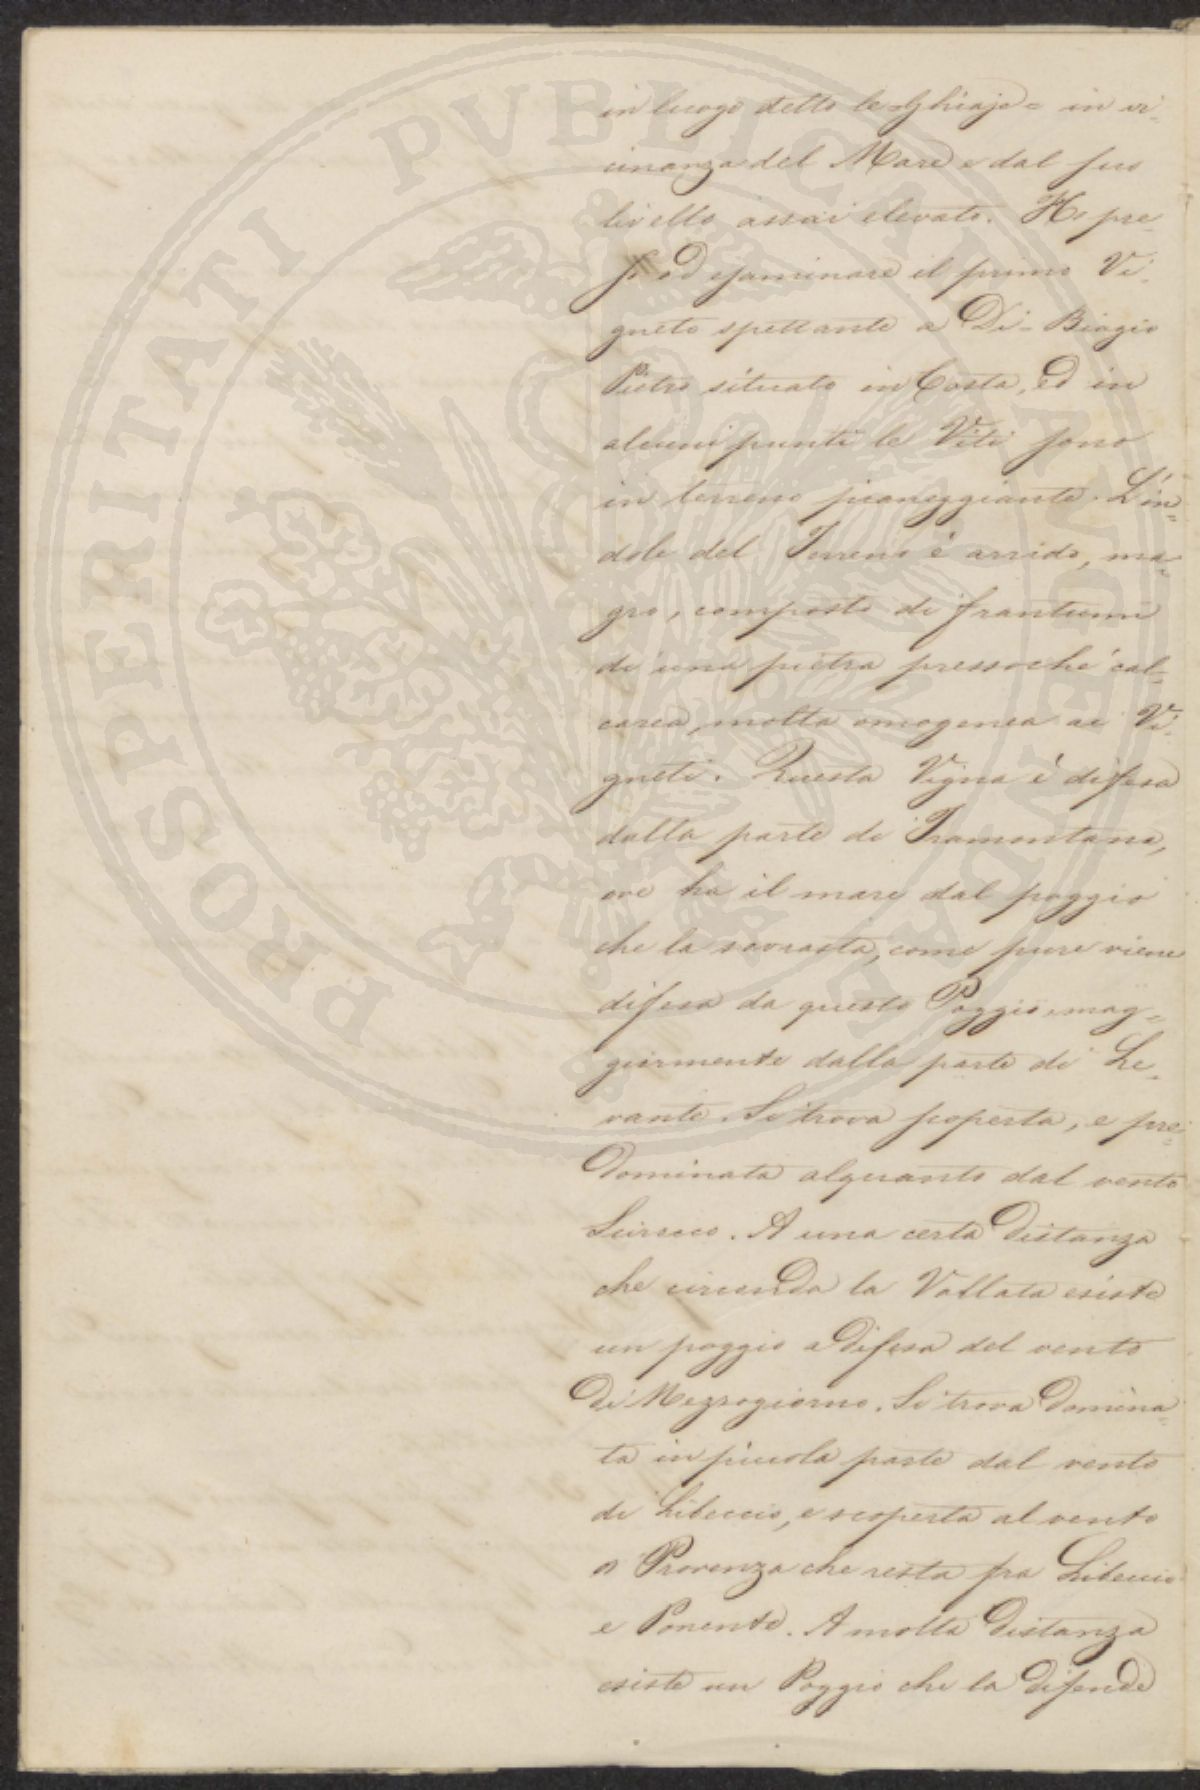 PROSPERITATI PUBLICAE AUGENDAE
in luogo detto le=Ghiaje= in vi-
cinanza del Mare e dal suo
livello assai elevato. Ho pre-
so ad esaminare il primo Vi-
gneto spettante a Di-Biagio
Pietro situato in Costa, ed in
alcuni punti le Viti sono
in terreno pianeggiante. L'in=
dole del Terreno è arrido, ma=
gro, composto di frantumi
di una pietra pressochè cal=
carea, molto omogenea ai Vi-
gneti. Questa Vigna è difesa
dalla parte di Tramontana,
ove ha il mare dal poggio
che la sovrasta, come pure viene
difesa da questo Poggio, mag=
giormente dalla parte di Le-
vante. Si trova scoperta, e pre=
dominata alquanto dal vento
Scirocco. A una certa distanza
che circonda la Vallata esiste
un poggio a difesa del vento
di Mezzogiorno. Si trova domina=
ta in piccola parte dal vento
di Libeccio, e scoperta al vento
a Provenza che resta fra Libeccio
e Ponente. A molta distanza
esiste un Poggio che la difende